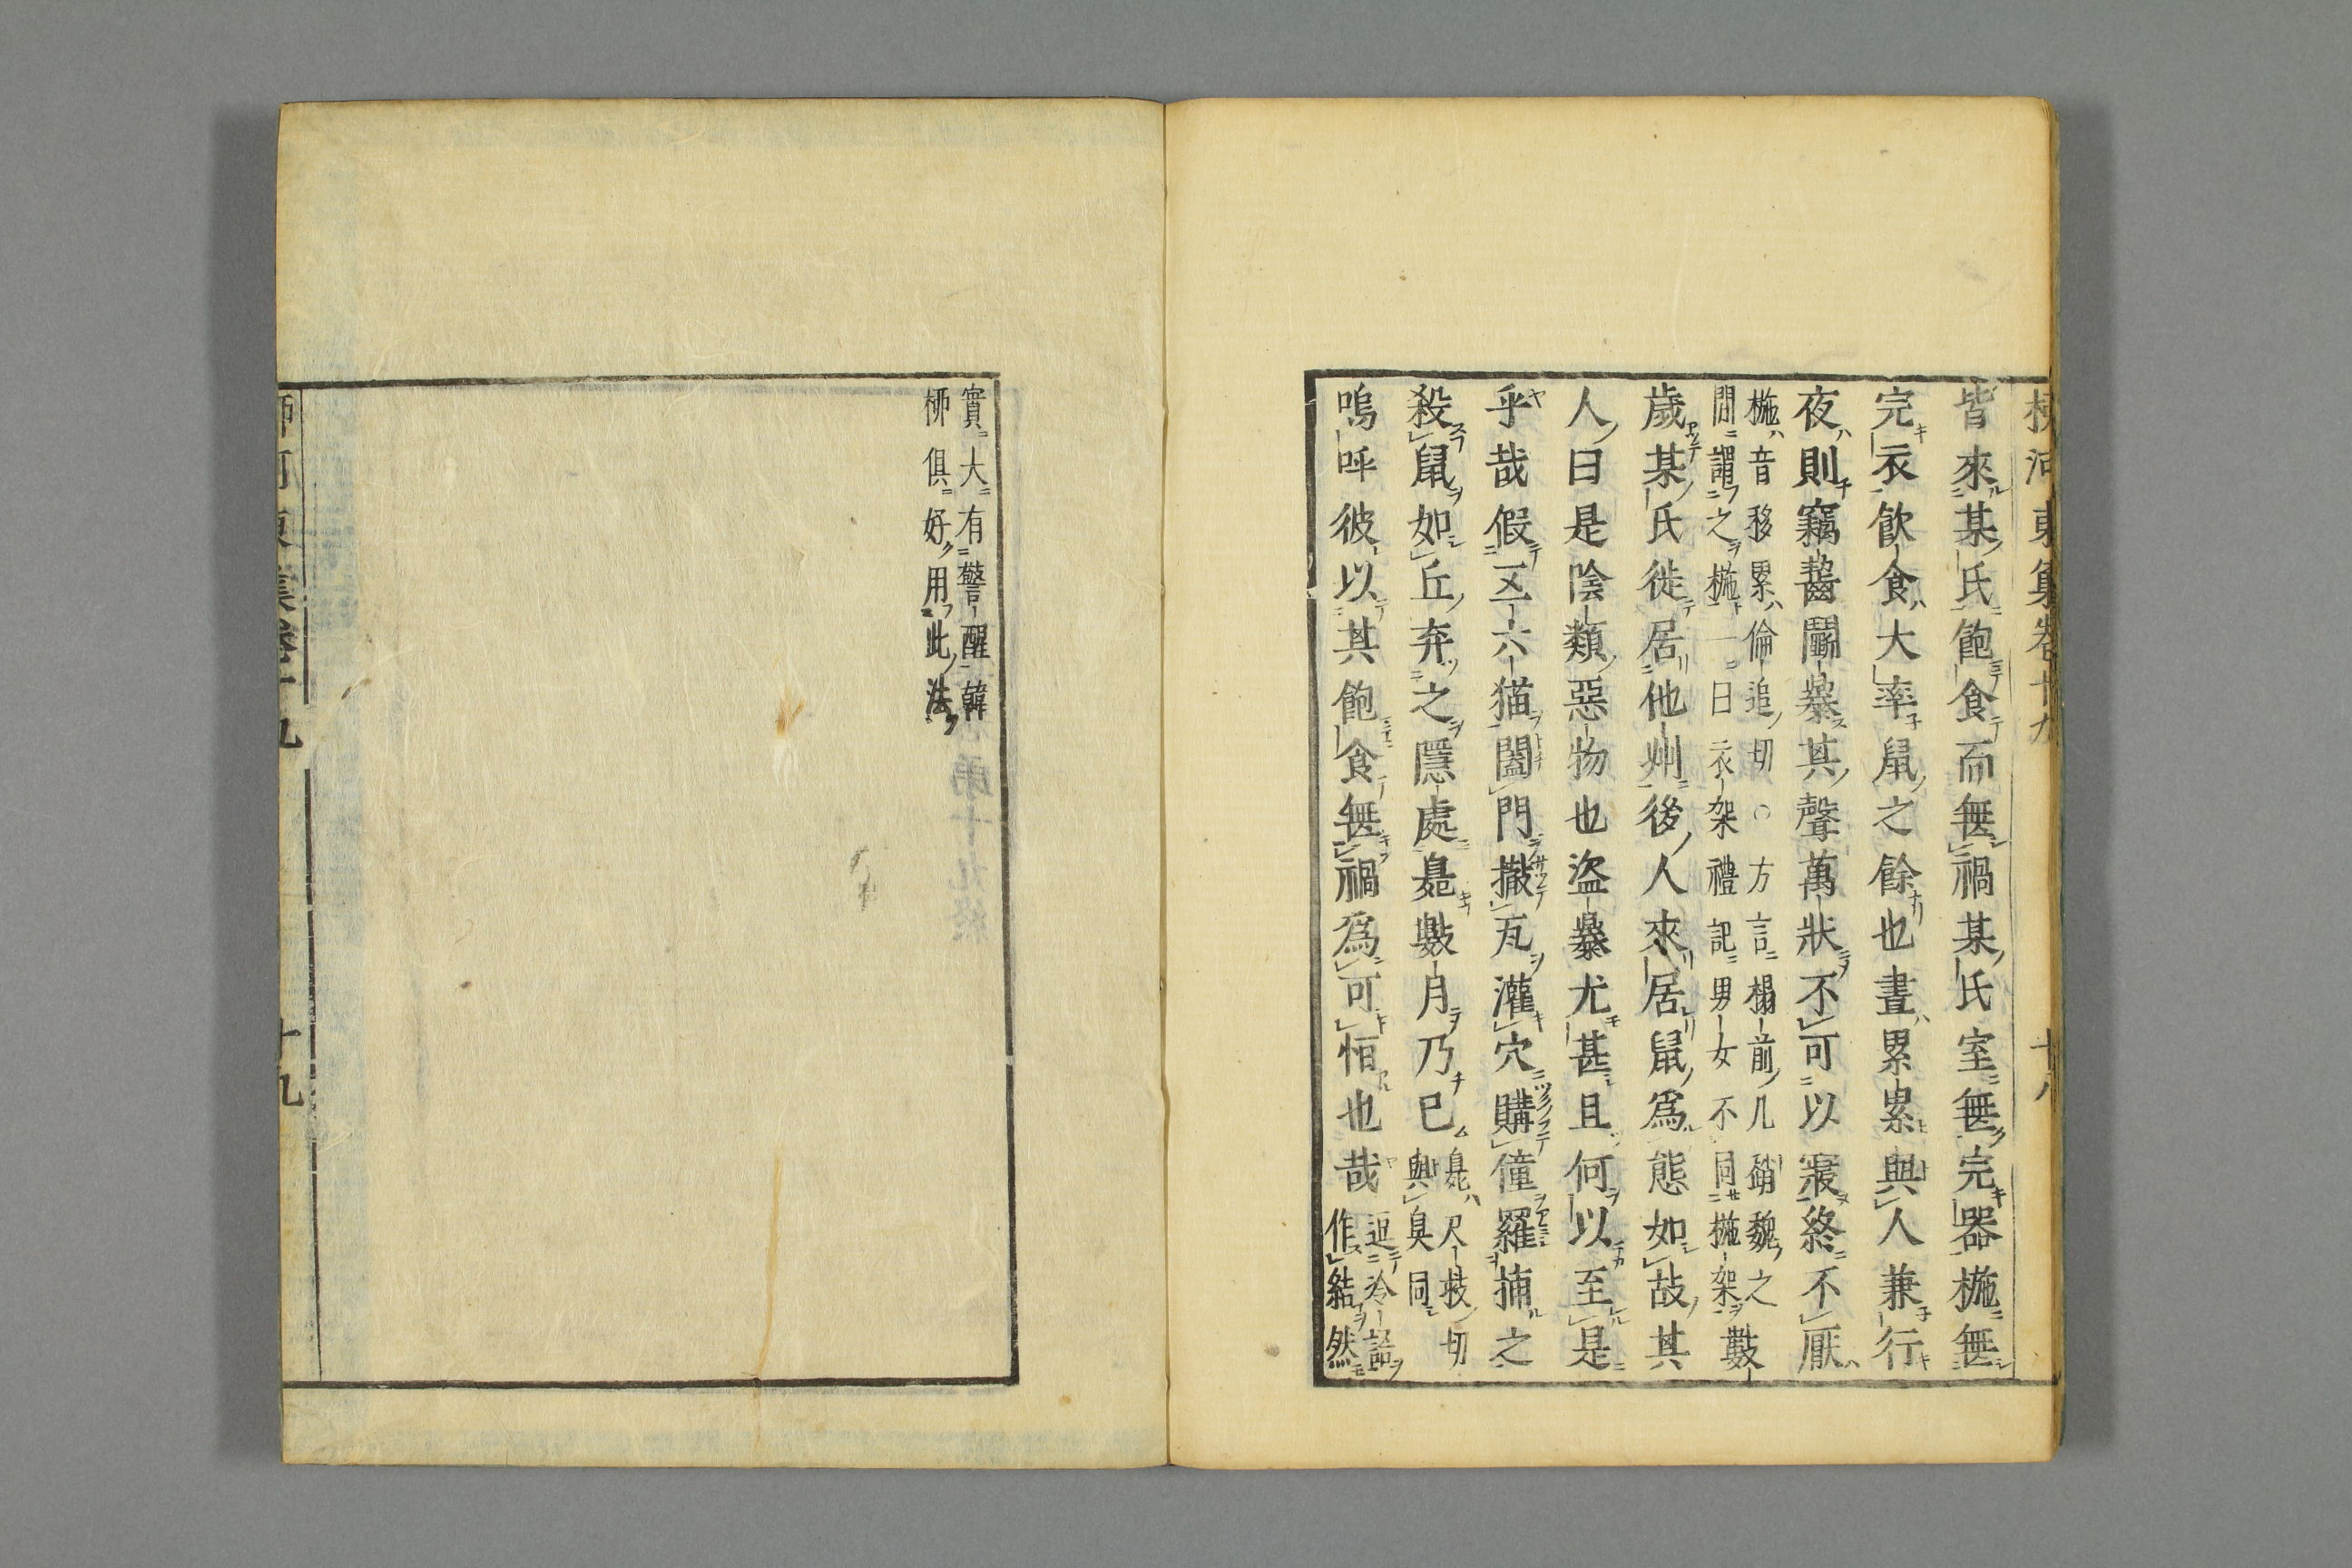 柳河東集卷十九 十八
皆來某氏飽食而無禍某氏室無完器椸無
完衣飲食大率鼠之餘也晝累累與人兼行
夜則竊齧鬭暴其聲萬狀不可以寢終不厭
椸音移累倫追切○方言榻前几硝魏之
間謂之椸一曰衣架禮記男女不同椸架
數
歲某氏徙居他州後人來居鼠爲態如故其
人曰是陰類惡物也盜暴尤甚且何以至是
乎哉假五六猫闔門撤瓦灌穴購僮羅捕之
殺鼠如丘弃之隱處臰數月乃已
臰尺救切
與臭同
嗚呼彼以其飽食無禍爲可恒也哉
逗冷語
作結然
實大有警醒韓
柳俱好用此法
柳河東集卷十九 十九